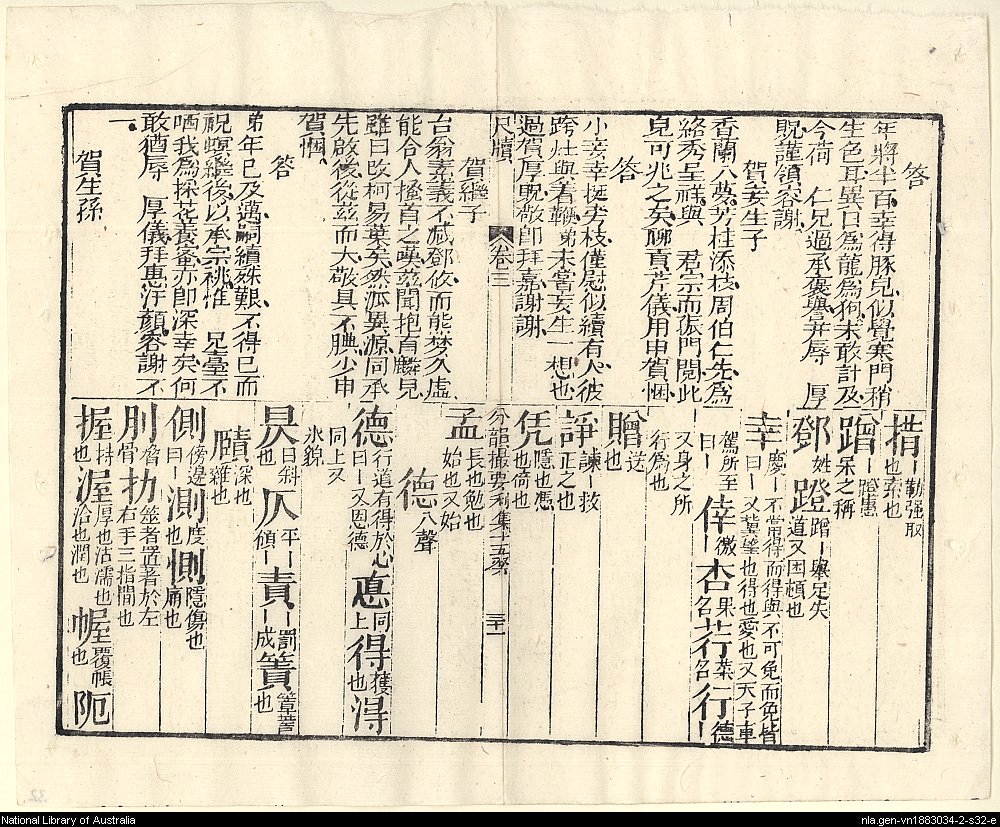 答
年將半百幸得豚兒似覺寒門稍
生色耳異日為龍為狗未敢計及
今荷 仁兄過承褒譽并辱 厚
貺謹領容謝
賀妾生子
香蘭八夢芳桂添枝周伯仁先為
絡秀呈祥與 君宗而振門閥此
兒可兆之矣聊貢芹儀用申賀悃
答
小妾幸挺劣枝僅慰似續有人彼
跨灶與着鞭弟未嘗妄生一想也
過賀厚貺敬即拜嘉謝謝
尺牘 卷三
賀繼子
台翁嘉義不減鄧攸而熊夢久虛
能令人搔首之嘆茲聞抱育麟兒
雖曰改柯易葉矣然派異源同承
先啟後從茲而大敬具不腆少申
賀悃
答
弟年已及邁嗣續殊艱不得已而
祝螟繼後以承宗祧惟 兄臺不
哂我為採花養蜜亦即深幸矣何
敢猶辱 厚儀拜惠汗顏容謝不
一
賀生孫
措－勒强取也索也
蹭－蹬 惠呆之稱
鄧姓 蹬蹭－舉足失道又困頓也
幸慶－不當得而得與不可免而免皆曰－又冀望也得也愛也又天子車
駕所至曰－ 倖徼－ 杏果名 荇菜名 行德－
又身之所行為也
贈送也
諍諫－救正之也
凭隱也憑也倚也
分韻撮要利集十五登 三十一
孟長也勉也始也又始
德八聲
德行道有得於心曰－又恩德 惪同上 得獲也 淂
同上又水貌
昃日斜也 仄平－傾－ 責－罰－成 簀簟也
賾深也雜也
側傍邊曰－ 測度也 惻隱傷也痛也
刖脅骨 扐筮者置蓍於左右手三指間也
握持也 渥厚也沾濡也洽也潤也 幄覆帳也 阨
National Library of Australia
nla.gen-vn1883034-2-s32-e